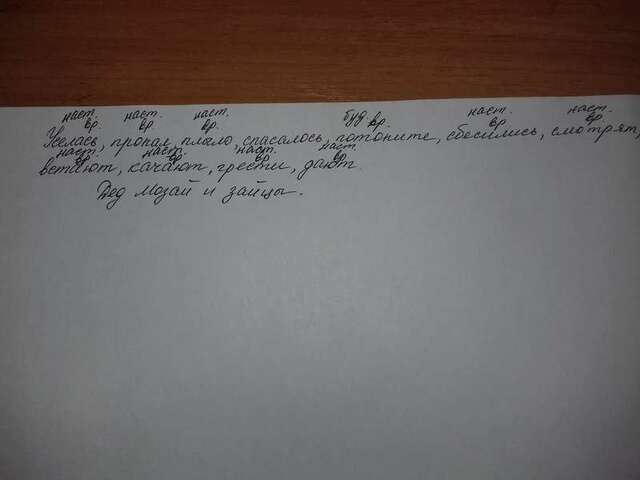 наст. наст. наст. буд вр. наст. наст.
вр. вр. вр. вр. вр.
Уселась, пропал, плыло, спасалось, потоните, сбесились, смотрят,
наст. наст. наст. наст.
вр. вр. вр. вр.
встают, качают, грести, дают.
Дед Мозай и зайцы.